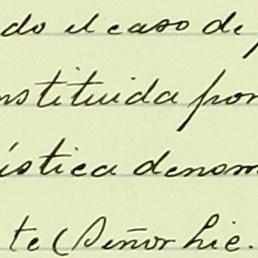 do el caso de p
nstituida por
ística denom
te (Señor Lic.